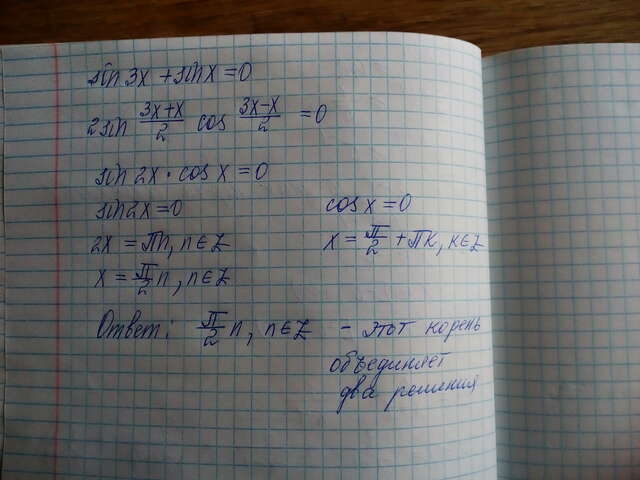 sin 3x + sin x = 0
2 sin (3x+x)/2 cos (3x-x)/2 = 0
sin 2x · cos x = 0
sin 2x = 0 cos x = 0
2x = πn, n∈Z x = π/2 + πk, k∈Z
x = π/2 n, n∈Z
Ответ: π/2 n, n∈Z - этот корень
объединяет
два решения